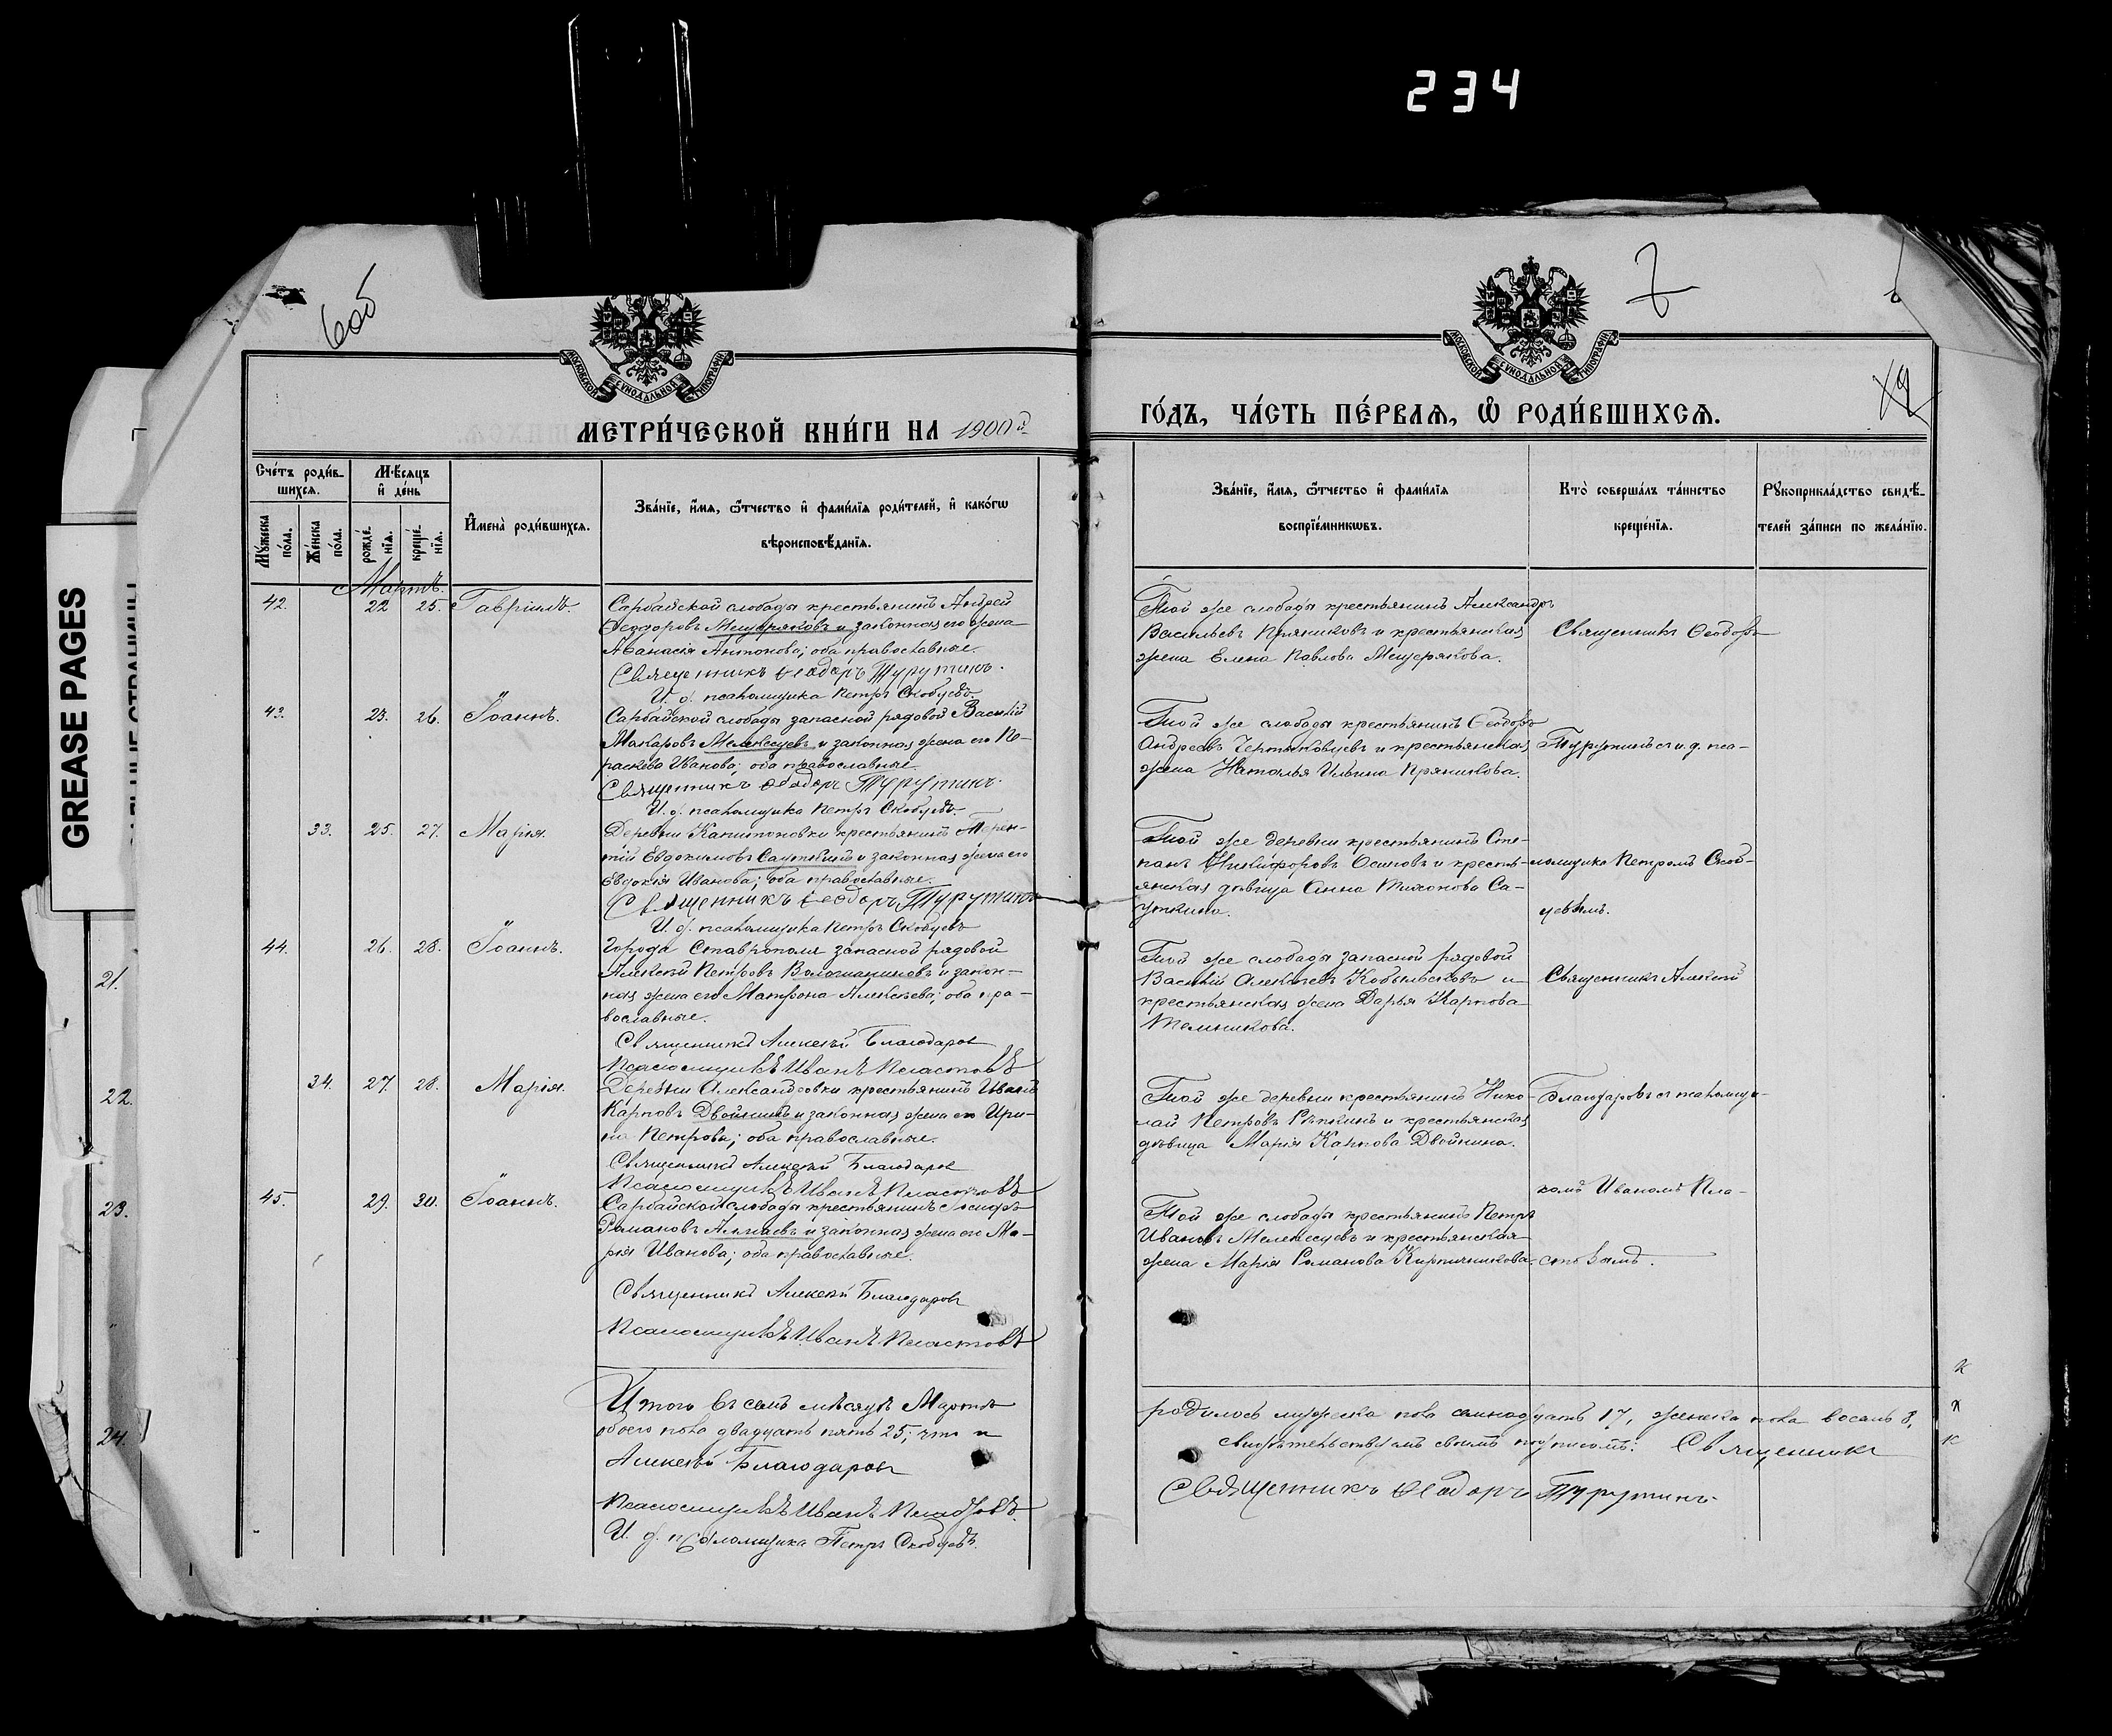 234
7
GREASE PAGES
МОСКОВСКОЙ СѴНОДАЛЬНОЙ ТИПОГРАФІИ
МОСКОВСКОЙ СѴНОДАЛЬНОЙ ТИПОГРАФІИ
МЕТРИ́ЧЕСКОЙ КНИ́ГИ НА 1900 й
ГО́ДЪ, ЧА́СТЬ ПЕ́РВАЯ, Ѡ҆ РОДИ́ВШИХСЯ.
Сче́тъ роди́в-
шихся.
Мꙋ́жеска по́ла.
Же́нска по́ла.
Мѣ́сяцъ
и҆ де́нь
рожде́нїя.
креще́нїя.
И҆мена̀ роди́вшихся.
Зва́нїе, и҆́мя, ѻ҆́тчество и҆ фами́лїя роди́телей, и҆ како́гѡ
вѣроисповѣ́данїя.
Зва́нїе, и҆́мя, ѻ҆́тчество и҆ фами́лїя
воспрїе́мникѡвъ.
Кто̀ соверша́лъ та́инство
креще́нїя.
Рꙋкоприкла́дство свидѣ́-
телей за́писи по жела́нїю.
Мартъ.
42. 22 25. Гавріилъ.
Сарбайской слободы крестьянинъ Андрей
Ѳеодоровъ Мещеряковъ и законная его жена
Аѳанасія Антонова; оба православные.
Священникъ Ѳеодоръ Турутинъ.
И. д. псаломщика Петръ Скобцевъ.
Той же слободы крестьянинъ Александръ
Васильевъ Пряниковъ и крестьянская
жена Елена Павлова Мещерякова.
Священникъ Ѳеодоръ
43. 23. 26. Іоаннъ.
Сарбайской слободы запасной рядовой Василій
Макаровъ Мелекесцевъ и законная жена его Па-
раскева Иванова; оба православные.
Священникъ Ѳеодоръ Турутинъ.
И. д. псаломщика Петръ Скобцевъ.
Той же слободы крестьянинъ Ѳеодоръ
Андреевъ Чертыковцевъ и крестьянская
жена Наталья Ильина Пряникова.
Турутинъ съ и. д. пса-
33. 25. 27. Марія.
Деревни Капитоновки крестьянинъ Терен-
тій Евдокимовъ Сауткинъ и законная жена его
Евдокія Иванова; оба православные.
Священникъ Ѳеодоръ Турутинъ
И. д. псаломщика Петръ Скобцевъ
Той же деревни крестьянинъ Сте-
панъ Никифоровъ Осиповъ и кресть-
янская дѣвица Анна Тихонова Са-
уткина.
ломщика Петромъ Скоб-
цевымъ.
44. 26. 28. Іоаннъ.
Города Ставрополя запасной рядовой
Алексѣй Петровъ и закон-
ная жена его Матрона Алексѣева; оба пра-
вославные.
Священникъ Алексѣй Благодаровъ
Псаломщикъ Иванъ Пластовъ
Той же слободы запасной рядовой
Василій Алексѣевъ Кобыльсковъ и
крестьянская жена Дарья Карпова
Мельникова.
Священникъ Алексѣй
34. 27. 28. Марія.
Деревни Александровки крестьянинъ Иванъ
Карповъ Двойнинъ и законная жена его Ири-
на Петрова; оба православные.
Священникъ Алексѣй Благодаровъ
Псаломщикъ Иванъ Пластовъ
Той же деревни крестьянинъ Нико-
лай Петровъ Рѣпкинъ и крестьянская
дѣвица Марія Карпова Двойнина.
Благодаровъ съ псаломщи-
комъ Иваномъ Пла-
45. 29. 30. Іоаннъ.
Сарбайской слободы крестьянинъ Іосифъ
Романовъ и законная жена его Ма-
рія Иванова; оба православные.
Священникъ Алексѣй Благодаровъ
Псаломщикъ Иванъ Пластовъ
Той же слободы крестьянинъ Петръ
Ивановъ Мелекесцевъ и крестьянская
жена Марія Романова Кирпичникова.
стовымъ.
Итого въ семъ мѣсяцѣ Мартѣ
обоего пола двадцать пять 25; что и
Алексѣй Благодаровъ
Псаломщикъ Иванъ Пластовъ.
И. д. псаломщика Петръ Скобцевъ.
родилось мужеска пола семнадцать 17, женска пола восемь 8,
свидѣтельствуемъ своимъ подписомъ: Священникъ
Священникъ Ѳеодоръ Турутинъ.
21.
22.
23.
24.